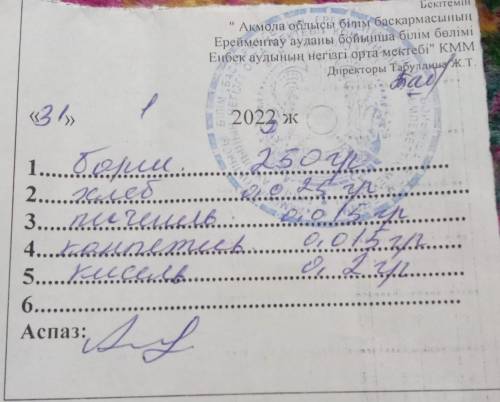 Бекітемін
" Ақмола облысы білім басқармасының
Ерейментау ауданы бойынша білім бөлімі
Еңбек ауылының негізгі орта мектебі" КММ
Директоры Табулдина Ж.Т.
«31» 1 2023 ж
1. борщ 250 гр
2. хлеб 0,025 гр
3. печенье 0,015 гр
4. канпетив 0,015 гр
5. кисель 0,2 гр
6.
Аспаз: